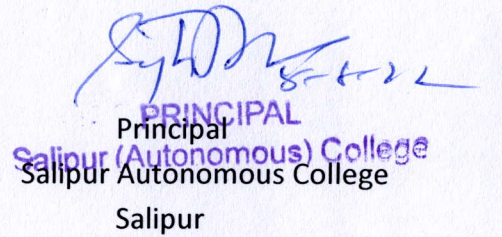 PRINCIPAL
Principal
Salipur (Autonomous) College
Salipur Autonomous College
Salipur